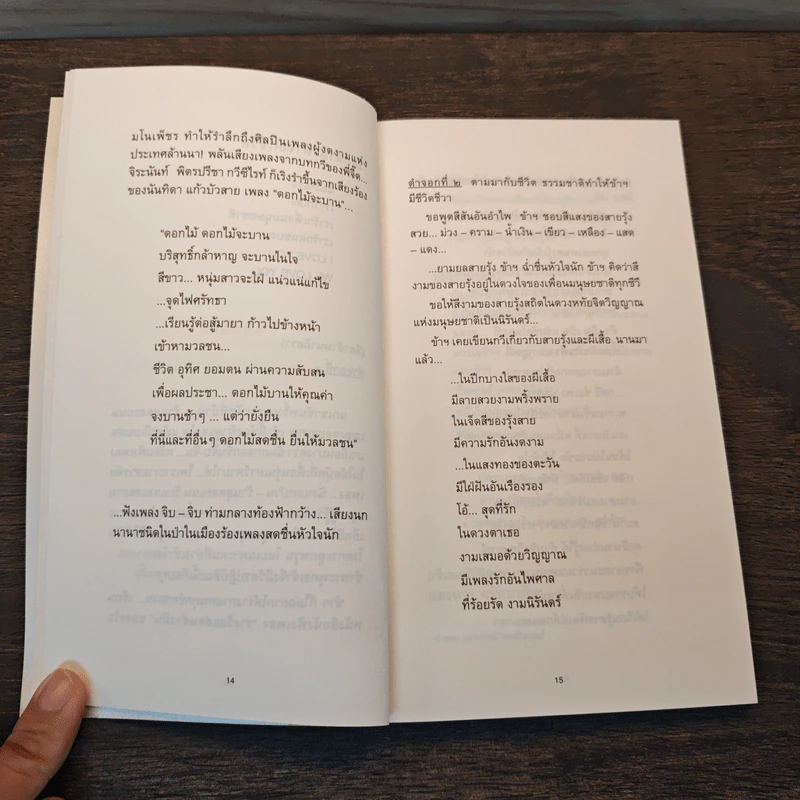 มโนเพ็ชร ทำให้รำลึกถึงศิลปินเพลงผู้งดงามแห่ง
ประเทศล้านนา! พลันเสียงเพลงจากบทกวีของพี่จี๊ด...
จิระนันท์ พิตรปรีชา กวีซีไรท์ ก็เริงรำขึ้นจากเสียงร้อง
ของนันทิดา แก้วบัวสาย เพลง "ดอกไม้จะบาน"...
"ดอกไม้ ดอกไม้จะบาน
บริสุทธิ์กล้าหาญ จะบานในใจ
สีขาว... หนุ่มสาวจะใฝ่ แน่วแน่แก้ไข
...จุดไฟศรัทธา
...เรียนรู้ต่อสู้มายา ก้าวไปข้างหน้า
เข้าหามวลชน...
ชีวิต อุทิศ ยอมตน ผ่านความสับสน
เพื่อผลประชา... ดอกไม้บานให้คุณค่า
จงบานช้าๆ ... แต่ว่ายั่งยืน
ที่นี่และที่อื่นๆ ดอกไม้สดชื่น ยื่นให้มวลชน"
...ฟังเพลง จิบ – จิบ ท่ามกลางท้องฟ้ากว้าง... เสียงนก
นานาชนิดในป่าในเมืองร้องเพลงสดชื่นหัวใจนัก
14
ดำจอกที่ ๒ ตามมากับชีวิต ธรรมชาติทำให้ข้าฯ
มีชีวิตชีวา
ขอพูดสีสันอันอำไพ ข้าฯ ชอบสีแสงของสายรุ้ง
สวย... ม่วง – คราม – น้ำเงิน – เขียว – เหลือง – แสด
– แดง...
...ยามยลสายรุ้ง ข้าฯ ฉ่ำชื่นหัวใจนัก ข้าฯ คิดว่าสี
งามของสายรุ้งอยู่ในดวงใจของเพื่อนมนุษยชาติทุกชีวี
ขอให้สีงามของสายรุ้งสถิตในดวงหทัยจิตวิญญาณ
แห่งมนุษยชาติเป็นนิรันดร์...
ข้าฯ เคยเขียนกวีเกี่ยวกับสายรุ้งและผีเสื้อ นานมา
แล้ว...
...ในปีกบางใสของผีเสื้อ
มีลายสวยงามพริ้งพราย
ในเจ็ดสีของรุ้งสาย
มีความรักอันงดงาม
...ในแสงทองของตะวัน
มีใฝ่ฝันอันเรืองรอง
โอ้... สุดที่รัก
ในดวงตาเธอ
งามเสมอด้วยวิญญาณ
มีเพลงรักอันไพศาล
ที่ร้อยรัด งามนิรันดร์
15